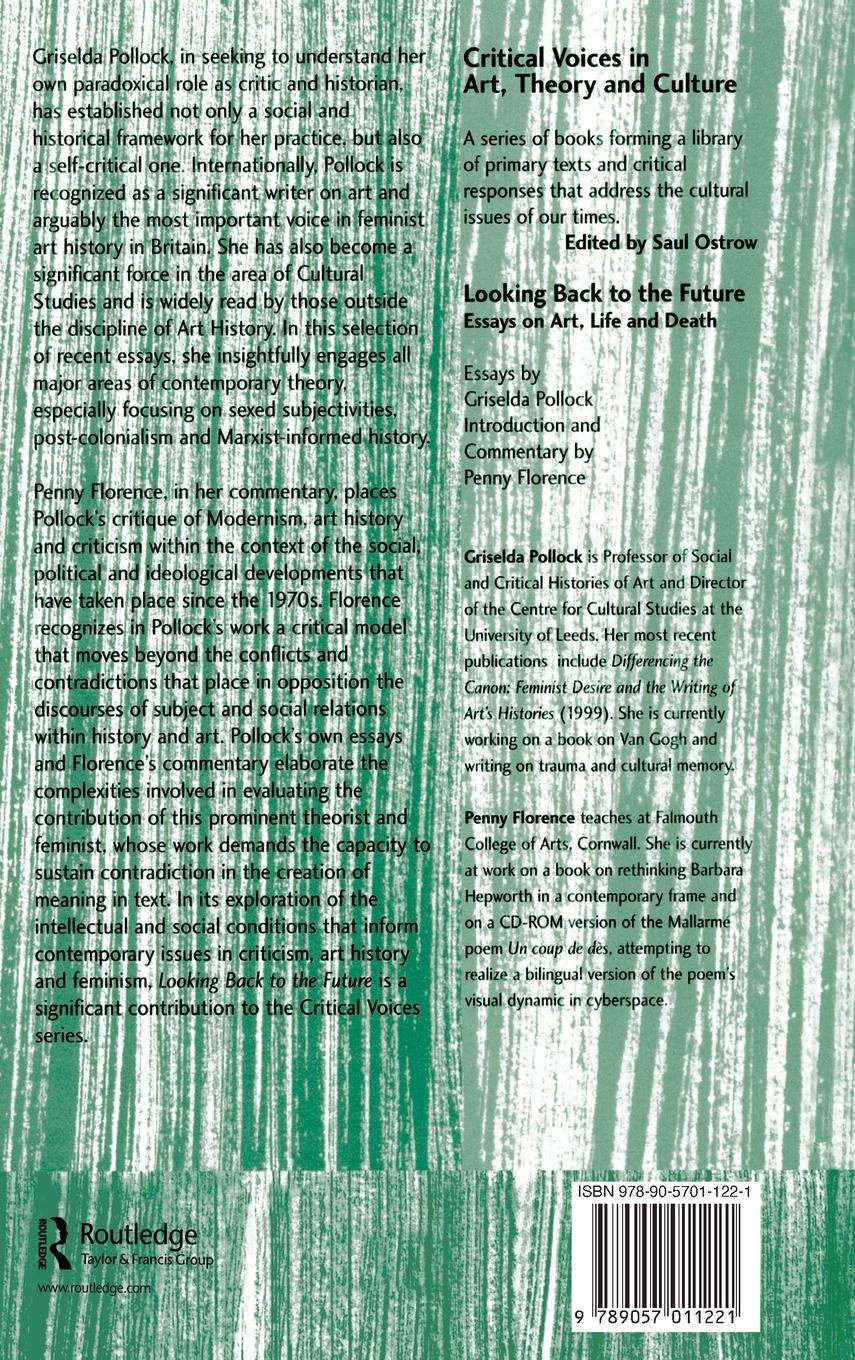 Griselda Pollock, in seeking to understand her
own paradoxical role as critic and historian,
has established not only a social and
historical framework for her practice, but also
a self-critical one. Internationally, Pollock is
recognized as a significant writer on art and
arguably the most important voice in feminist
art history in Britain. She has also become a
significant force in the area of Cultural
Studies and is widely read by those outside
the discipline of Art History. In this selection
of recent essays, she insightfully engages all
major areas of contemporary theory,
especially focusing on sexed subjectivities,
post-colonialism and Marxist-informed history.
Penny Florence, in her commentary, places
Pollock's critique of Modernism, art history
and criticism within the context of the social,
political and ideological developments that
have taken place since the 1970s. Florence
recognizes in Pollock's work a critical model
that moves beyond the conflicts and
contradictions that place in opposition the
discourses of subject and social relations
within history and art. Pollock's own essays
and Florence's commentary elaborate the
complexities involved in evaluating the
contribution of this prominent theorist and
feminist, whose work demands the capacity to
sustain contradiction in the creation of
meaning in text. In its exploration of the
intellectual and social conditions that inform
contemporary issues in criticism, art history
and feminism, Looking Back to the Future is a
significant contribution to the Critical Voices
series.
Critical Voices in
Art, Theory and Culture
A series of books forming a library
of primary texts and critical
responses that address the cultural
issues of our times.
Edited by Saul Ostrow
Looking Back to the Future
Essays on Art, Life and Death
Essays by
Griselda Pollock
Introduction and
Commentary by
Penny Florence
Griselda Pollock is Professor of Social
and Critical Histories of Art and Director
of the Centre for Cultural Studies at the
University of Leeds. Her most recent
publications include Differencing the
Canon: Feminist Desire and the Writing of
Art's Histories (1999). She is currently
working on a book on Van Gogh and
writing on trauma and cultural memory.
Penny Florence teaches at Falmouth
College of Arts, Cornwall. She is currently
at work on a book on rethinking Barbara
Hepworth in a contemporary frame and
on a CD-ROM version of the Mallarmé
poem Un coup de dès, attempting to
realize a bilingual version of the poem's
visual dynamic in cyberspace.
ROUTLEDGE
Routledge
Taylor & Francis Group
www.routledge.com
ISBN 978-90-5701-122-1
9 789057 011221